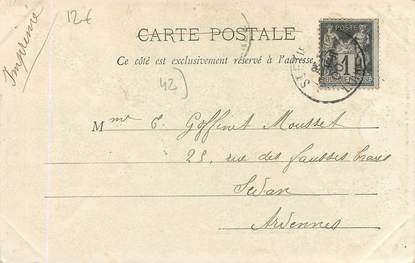 12€
Imprimé
CARTE POSTALE
Ce côté est exclusivement réservé à l'adresse
POSTE
1
42
Mme E. Goffinet Mousset
25, rue des fausses braies
Sedan
Ardennes